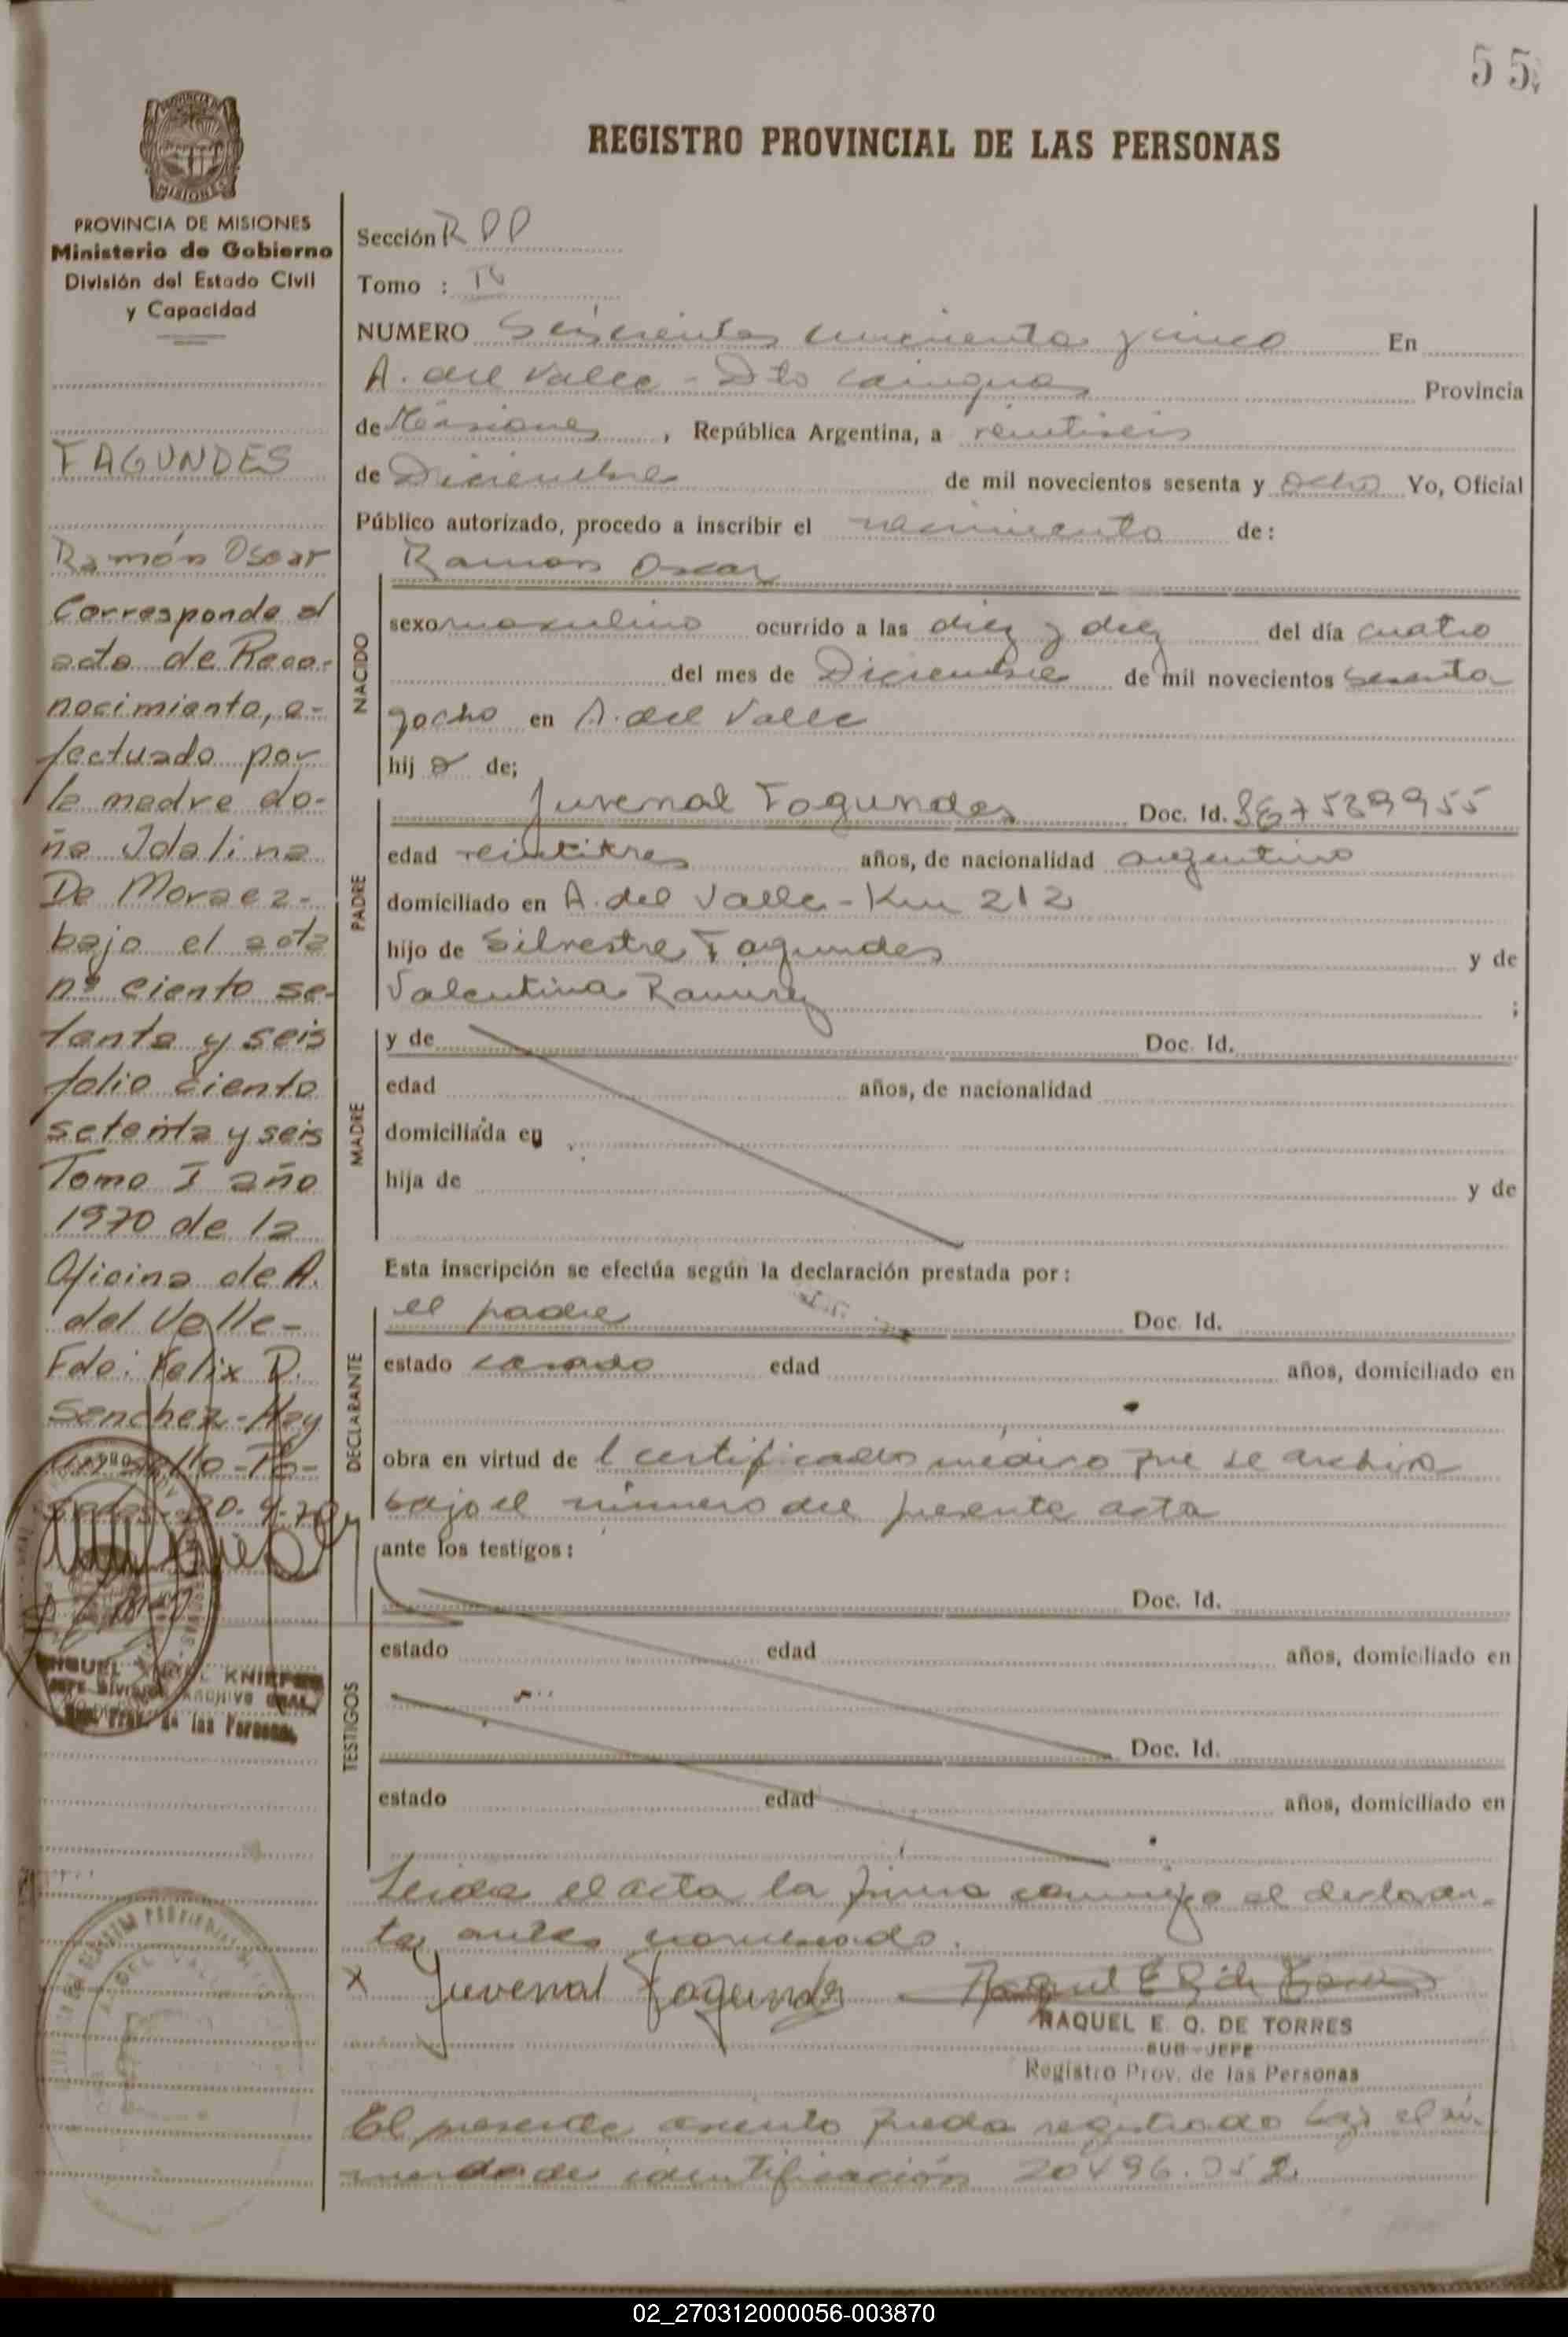 55
REGISTRO PROVINCIAL DE LAS PERSONAS
PROVINCIA DE MISIONES
Ministerio de Gobierno
División del Estado Civil
y Capacidad
FAGUNDES
Ramón Oscar
Corresponde al
acta de Reco-
nocimiento, e-
fectuado por
la madre do-
ña Idalina
De Moraez-
bajo el acta
nº ciento se-
tenta y seis
folio ciento
setenta y seis
Tomo I año
1970 de la
Oficina de A.
del Valle-
Fdo: Felix D.
Sanchez-Hay
un sello-Po-
sadas-20-
KNIEF
JEFE DIVISION ARCHIVO GRAL.
Prov. de las Personas
Sección R
Tomo : IV
NUMERO Seiscientos cincuenta y cinco En
A. del Valle - Dto Cainguas Provincia
de Misiones, República Argentina, a veintiseis
de Diciembre de mil novecientos sesenta y ocho Yo, Oficial
Público autorizado, procedo a inscribir el nacimiento de:
NACIDO
Ramon Oscar
sexo masculino ocurrido a las diez y diez del día cuatro
del mes de Diciembre de mil novecientos sesenta
y ocho en A. del Valle
hij o de;
PADRE
Juvenal Fagundes Doc. Id. 7589955
edad veintitres años, de nacionalidad argentino
domiciliado en A. del Valle - Km 212
hijo de Silvestre Fagundes y de
Valentina Ramirez ;
MADRE
y de Doc. Id.
edad años, de nacionalidad
domiciliada en
hija de y de
Esta inscripción se efectúa según la declaración prestada por:
DECLARANTE
el padre Doc. Id.
estado casado edad años, domiciliado en
obra en virtud de l certificado médico que se archiva
bajo el número del presente acta
ante los testigos:
TESTIGOS
Doc. Id.
estado edad años, domiciliado en
Doc. Id.
estado edad años, domiciliado en
Leida el acta la firma conmigo el declaran-
te antes nombrado.
x Juvenal Fagundes
RAQUEL E. O. DE TORRES
SUB-JEFE
Registro Prov. de las Personas
El presente asiento queda registrado bajo el nú-
mero de identificación 20496.
02_270312000056-003870